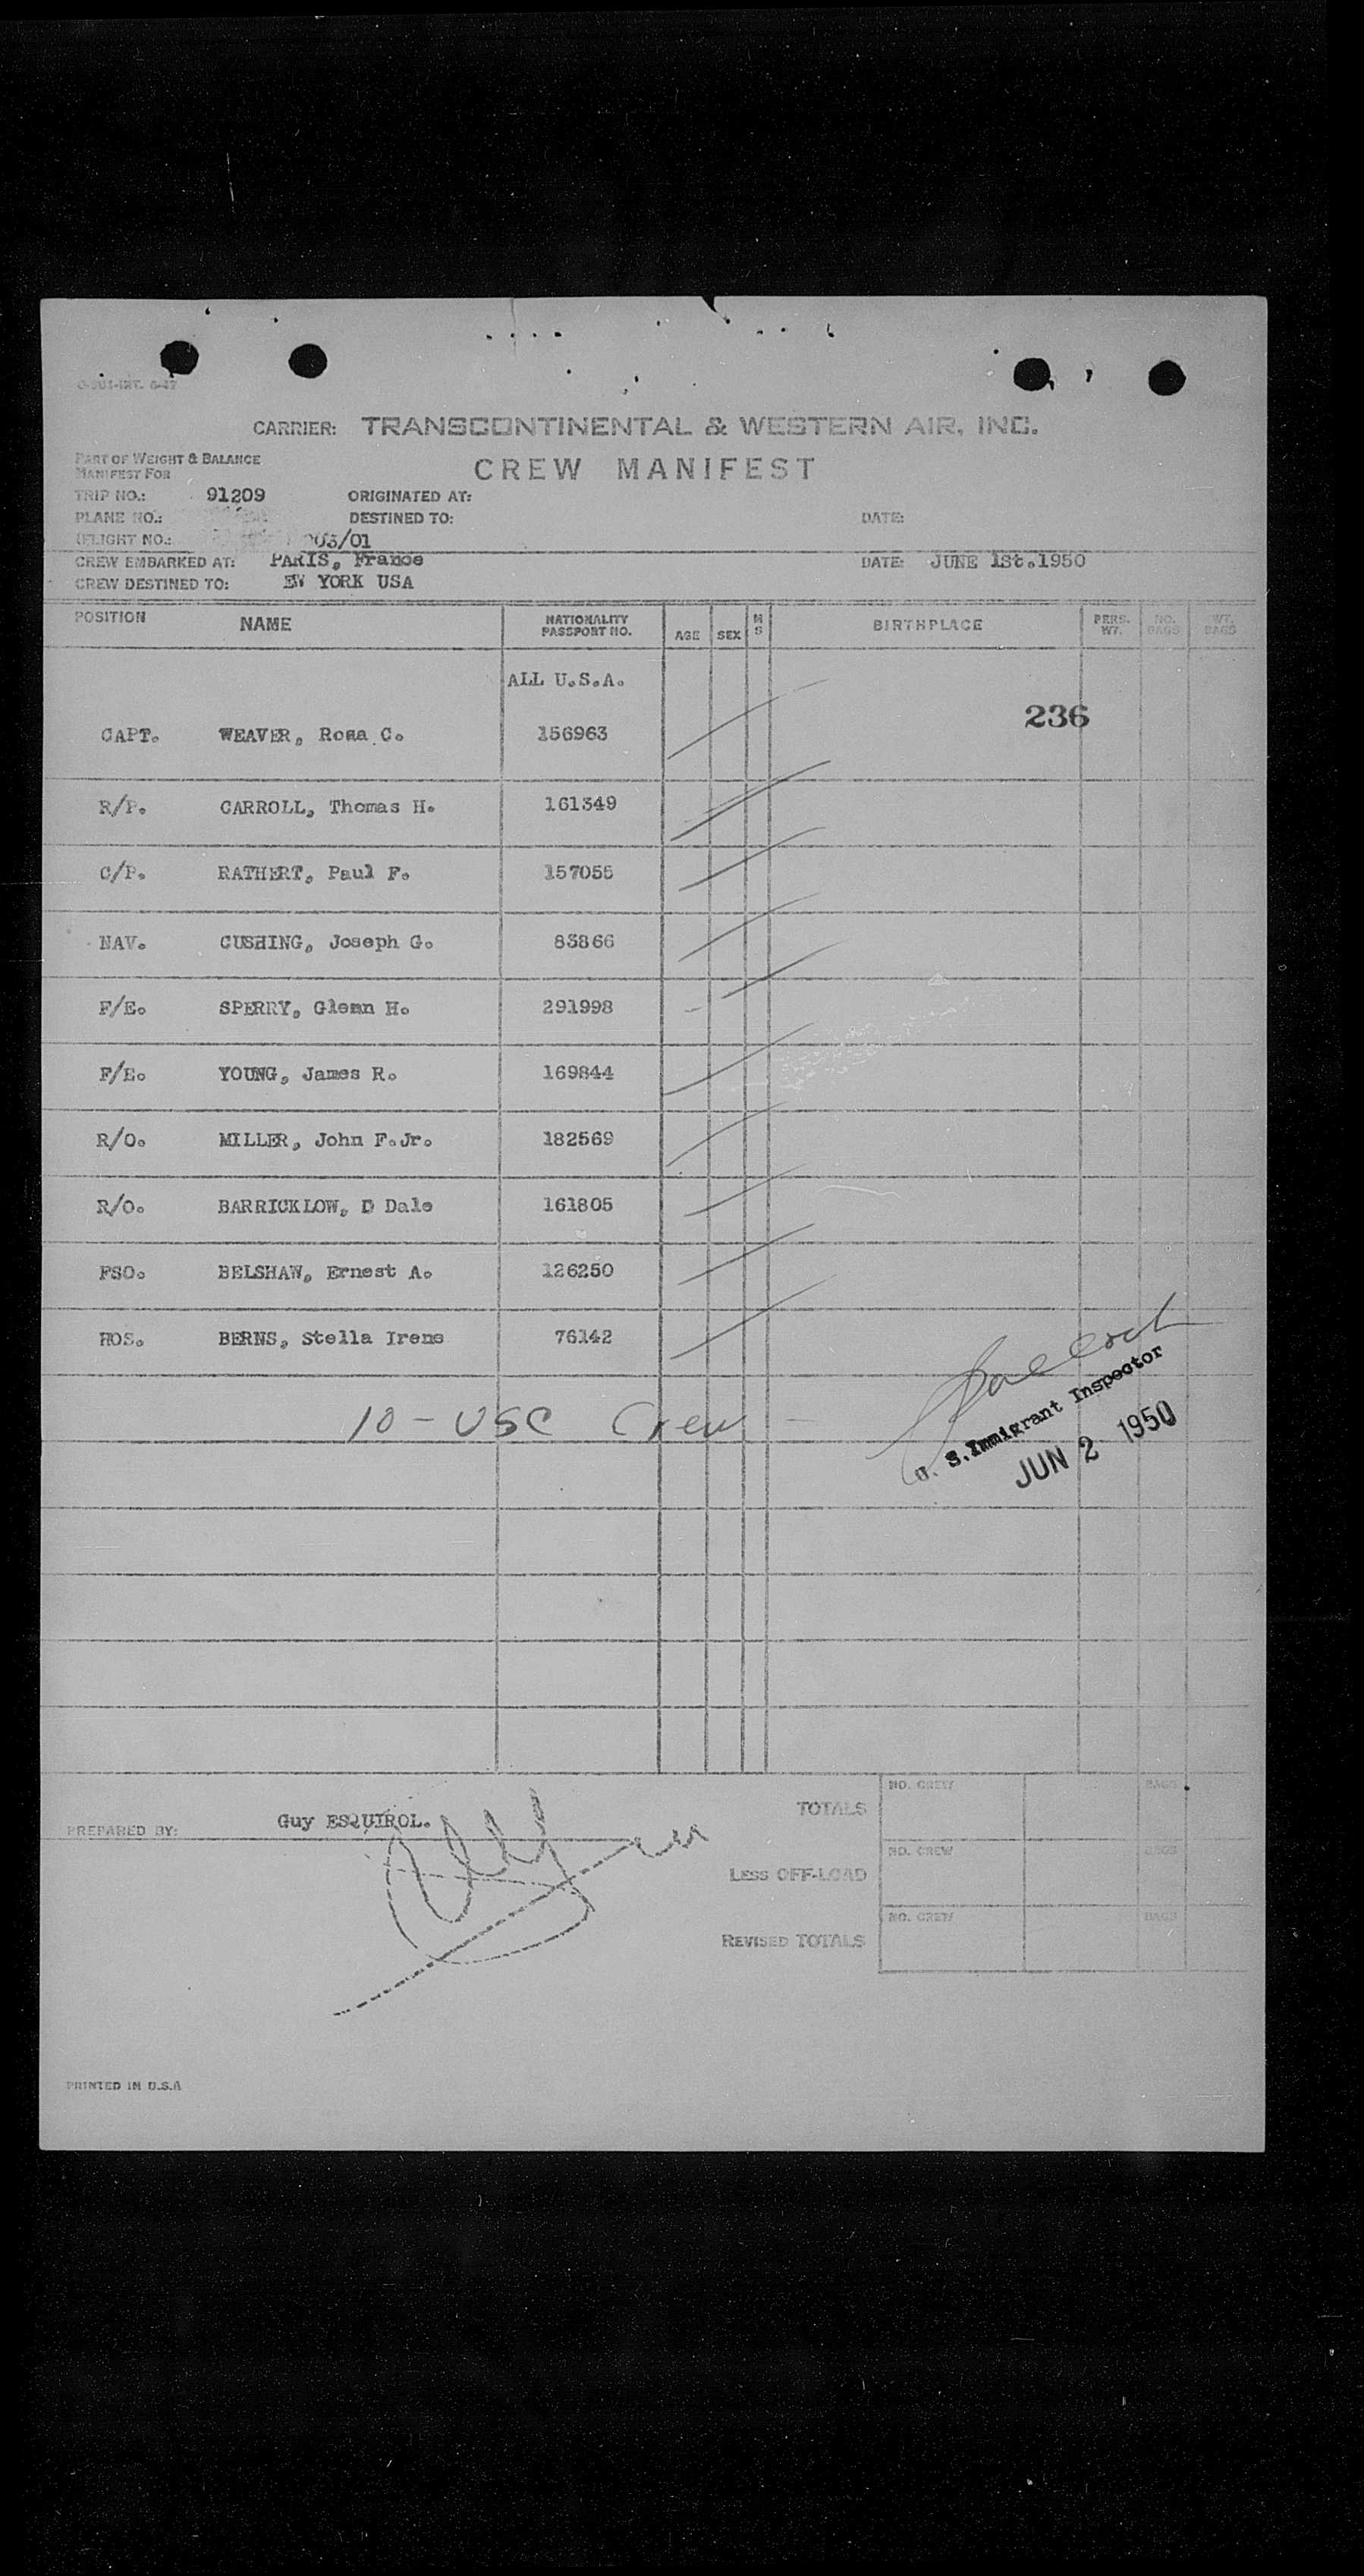 CARRIER: TRANSCONTINENTAL & WESTERN AIR, INC.
PART OF WEIGHT & BALANCE
MANIFEST FOR
CREW MANIFEST
TRIP NO.: 91209 ORIGINATED AT:
PLANE NO.: DESTINED TO: DATE:
FLIGHT NO.: 03/01
CREW EMBARKED AT: PARIS, France DATE: JUNE 1st.1950
CREW DESTINED TO: EW YORK USA
POSITION NAME NATIONALITY PASSPORT NO. AGE SEX M S BIRTHPLACE PERS. WT. NO. BAGS WT. BAGS
ALL U.S.A.
236
CAPT. WEAVER, C. 156963
R/P. CARROLL, Thomas H. 161349
C/P. RATHERT, Paul F. 157055
NAV. CUSHING, Joseph G. 83866
F/E. SPERRY, Glenn H. 291998
F/E. YOUNG, James R. 169844
R/O. MILLER, John F.Jr. 182569
R/O. BARRICKLOW, D Dale 161805
PSO. BELSHAW, Ernest A. 126250
HOS. BERNS, Stella Irene 76142
10 - USC Crew -
U. S. Immigrant Inspector
JUN 2 1950
PREPARED BY: Guy ESQUIROL.
TOTALS NO. CREW BAGS
LESS OFF-LOAD NO. CREW BAGS
REVISED TOTALS NO. CREW BAGS
PRINTED IN U.S.A